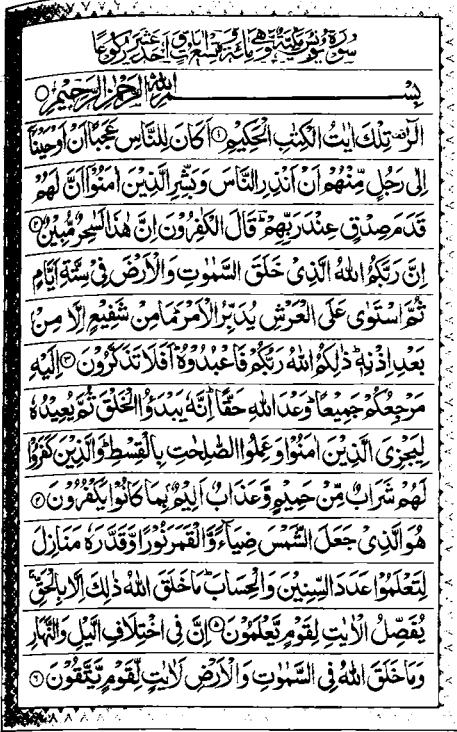 سُوْرَةُ يُوْنُسَ مَكِّيَّةٌ وَّهِيَ مِائَةٌ وَّتِسْعُ اٰيَاتٍ وَّاَحَدَ عَشَرَ رُكُوْعًا
بِسْمِ اللّٰهِ الرَّحْمٰنِ الرَّحِيْمِ
الٓرٰ تِلْكَ اٰيٰتُ الْكِتٰبِ الْحَكِيْمِ ۝۱ اَكَانَ لِلنَّاسِ عَجَبًا اَنْ اَوْحَيْنَاۤ
اِلٰى رَجُلٍ مِّنْهُمْ اَنْ اَنْذِرِ النَّاسَ وَبَشِّرِ الَّذِيْنَ اٰمَنُوْۤا اَنَّ لَهُمْ
قَدَمَ صِدْقٍ عِنْدَ رَبِّهِمْ ؕ قَالَ الْكٰفِرُوْنَ اِنَّ هٰذَا لَسٰحِرٌ مُّبِيْنٌ ۝۲
اِنَّ رَبَّكُمُ اللّٰهُ الَّذِيْ خَلَقَ السَّمٰوٰتِ وَالْاَرْضَ فِيْ سِتَّةِ اَيَّامٍ
ثُمَّ اسْتَوٰى عَلَى الْعَرْشِ يُدَبِّرُ الْاَمْرَ ؕ مَا مِنْ شَفِيْعٍ اِلَّا مِنْۢ
بَعْدِ اِذْنِهٖ ؕ ذٰلِكُمُ اللّٰهُ رَبُّكُمْ فَاعْبُدُوْهُ ؕ اَفَلَا تَذَكَّرُوْنَ ۝۳ اِلَيْهِ
مَرْجِعُكُمْ جَمِيْعًا ؕ وَعْدَ اللّٰهِ حَقًّا ؕ اِنَّهٗ يَبْدَؤُا الْخَلْقَ ثُمَّ يُعِيْدُهٗ
لِيَجْزِيَ الَّذِيْنَ اٰمَنُوْا وَعَمِلُوا الصّٰلِحٰتِ بِالْقِسْطِ ؕ وَالَّذِيْنَ كَفَرُوْا
لَهُمْ شَرَابٌ مِّنْ حَمِيْمٍ وَّعَذَابٌ اَلِيْمٌۢ بِمَا كَانُوْا يَكْفُرُوْنَ ۝۴
هُوَ الَّذِيْ جَعَلَ الشَّمْسَ ضِيَآءً وَّالْقَمَرَ نُوْرًا وَّقَدَّرَهٗ مَنَازِلَ
لِتَعْلَمُوْا عَدَدَ السِّنِيْنَ وَالْحِسَابَ ؕ مَا خَلَقَ اللّٰهُ ذٰلِكَ اِلَّا بِالْحَقِّ ۚ
يُفَصِّلُ الْاٰيٰتِ لِقَوْمٍ يَّعْلَمُوْنَ ۝۵ اِنَّ فِي اخْتِلَافِ الَّيْلِ وَالنَّهَارِ
وَمَا خَلَقَ اللّٰهُ فِي السَّمٰوٰتِ وَالْاَرْضِ لَاٰيٰتٍ لِّقَوْمٍ يَّتَّقُوْنَ ۝۶